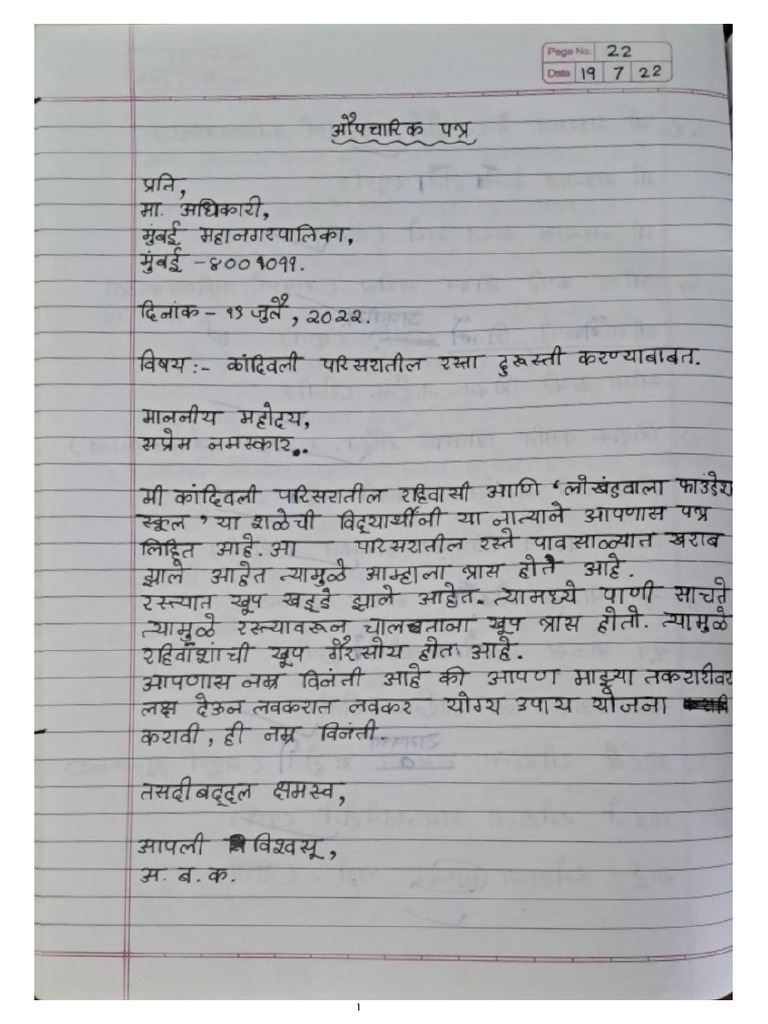 Page No. 22
Date 19 7 22
औपचारिक पत्र
प्रति,
मा. अधिकारी,
मुंबई महानगरपालिका,
मुंबई -४००१०११.
दिनांक - १९ जुलै, २०२२.
विषय :- कांदिवली परिसरातील रस्ता दुरूस्ती करण्याबाबत.
माननीय महोदय,
सप्रेम नमस्कार..
मी कांदिवली परिसरातील रहिवासी आणि 'लोखंडवाला फाउंडेश
स्कूल' या शळेची विद्यार्थीनी या नात्याने आपणास पत्र
लिहित आहे. आ परिसरातील रस्ते पावसाळ्यात खराब
झाले आहेत त्यामुळे आम्हाला त्रास होते आहे.
रस्त्यात खूप खड्डे झाले आहेत. त्यामध्ये पाणी साचते
त्यामुळे रस्त्यावरून चालताना खूप त्रास होतो. त्यामुळे
रहिवाशांची खूप गैरसोय होत आहे.
आपणास नम्र विनंती आहे की आपण माझ्या तकरारीवर
लक्ष देऊन लवकरात लवकर योग्य उपाय योजना
करावी, ही नम्र विनंती.
तसदीबद्दल क्षमस्व,
आपली विश्वसू,
अ. ब. क.
1